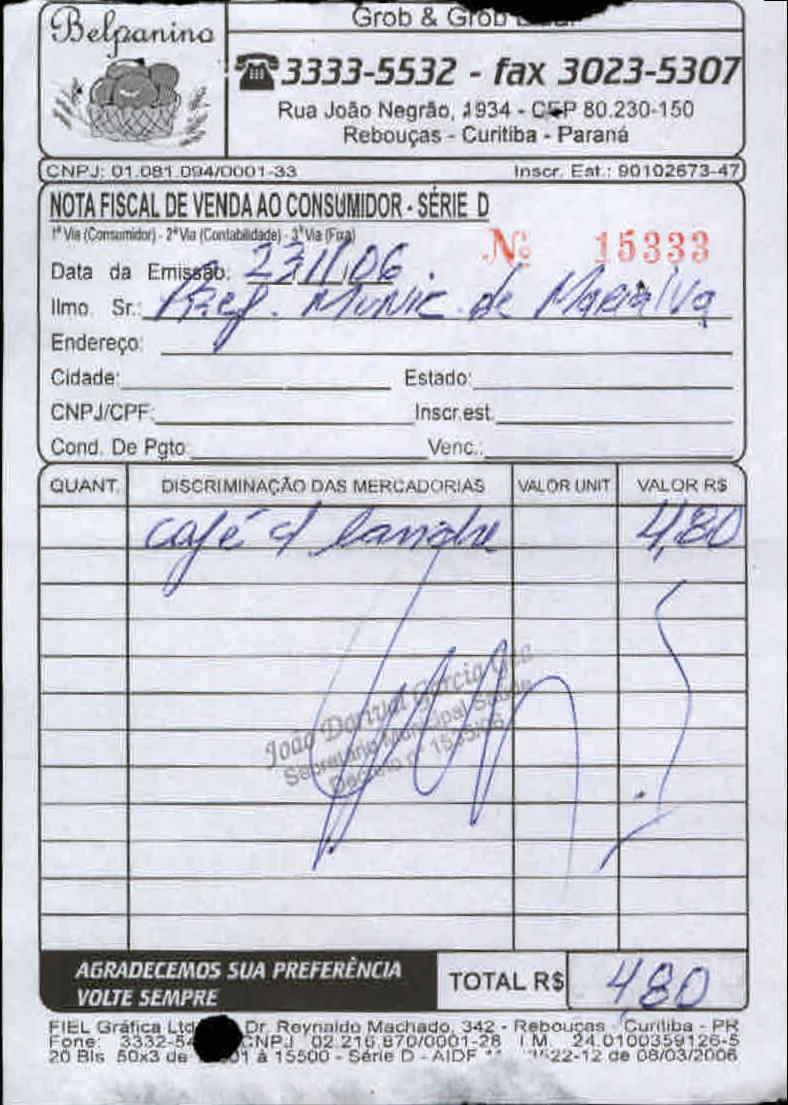 Belpanino
Grob & Grob
3333-5532 - fax 3023-5307
Rua João Negrão, 1934 - CEP 80.230-150
Rebouças - Curitiba - Paraná
CNPJ: 01.081.094/0001-33 Inscr. Est.: 90102673-47
NOTA FISCAL DE VENDA AO CONSUMIDOR - SÉRIE D
1ª Via (Consumidor) - 2ª Via (Contabilidade) - 3ª Via (Fixa)
Nº 15333
Data da Emissão: 23/1/06
Ilmo. Sr.: Pref. Munic. de Marialva
Endereço:
Cidade: Estado:
CNPJ/CPF: Inscr.est.
Cond. De Pgto. Venc.:
QUANT. DISCRIMINAÇÃO DAS MERCADORIAS VALOR UNIT. VALOR R$
café c/ lanche 4,80
João Dorival Garcia
Secretário Municipal Saúde
Decreto nº 1535/06
AGRADECEMOS SUA PREFERÊNCIA
VOLTE SEMPRE
TOTAL R$ 4,80
FIEL Gráfica Dr. Reynaldo Machado, 342 - Rebouças - Curitiba - PR
Fone: CNPJ 02.216.870/0001-28 I.M. 24.0100359126-5
20 Bls 50x3 de à 15500 - Série D - AIDF de 08/03/2006